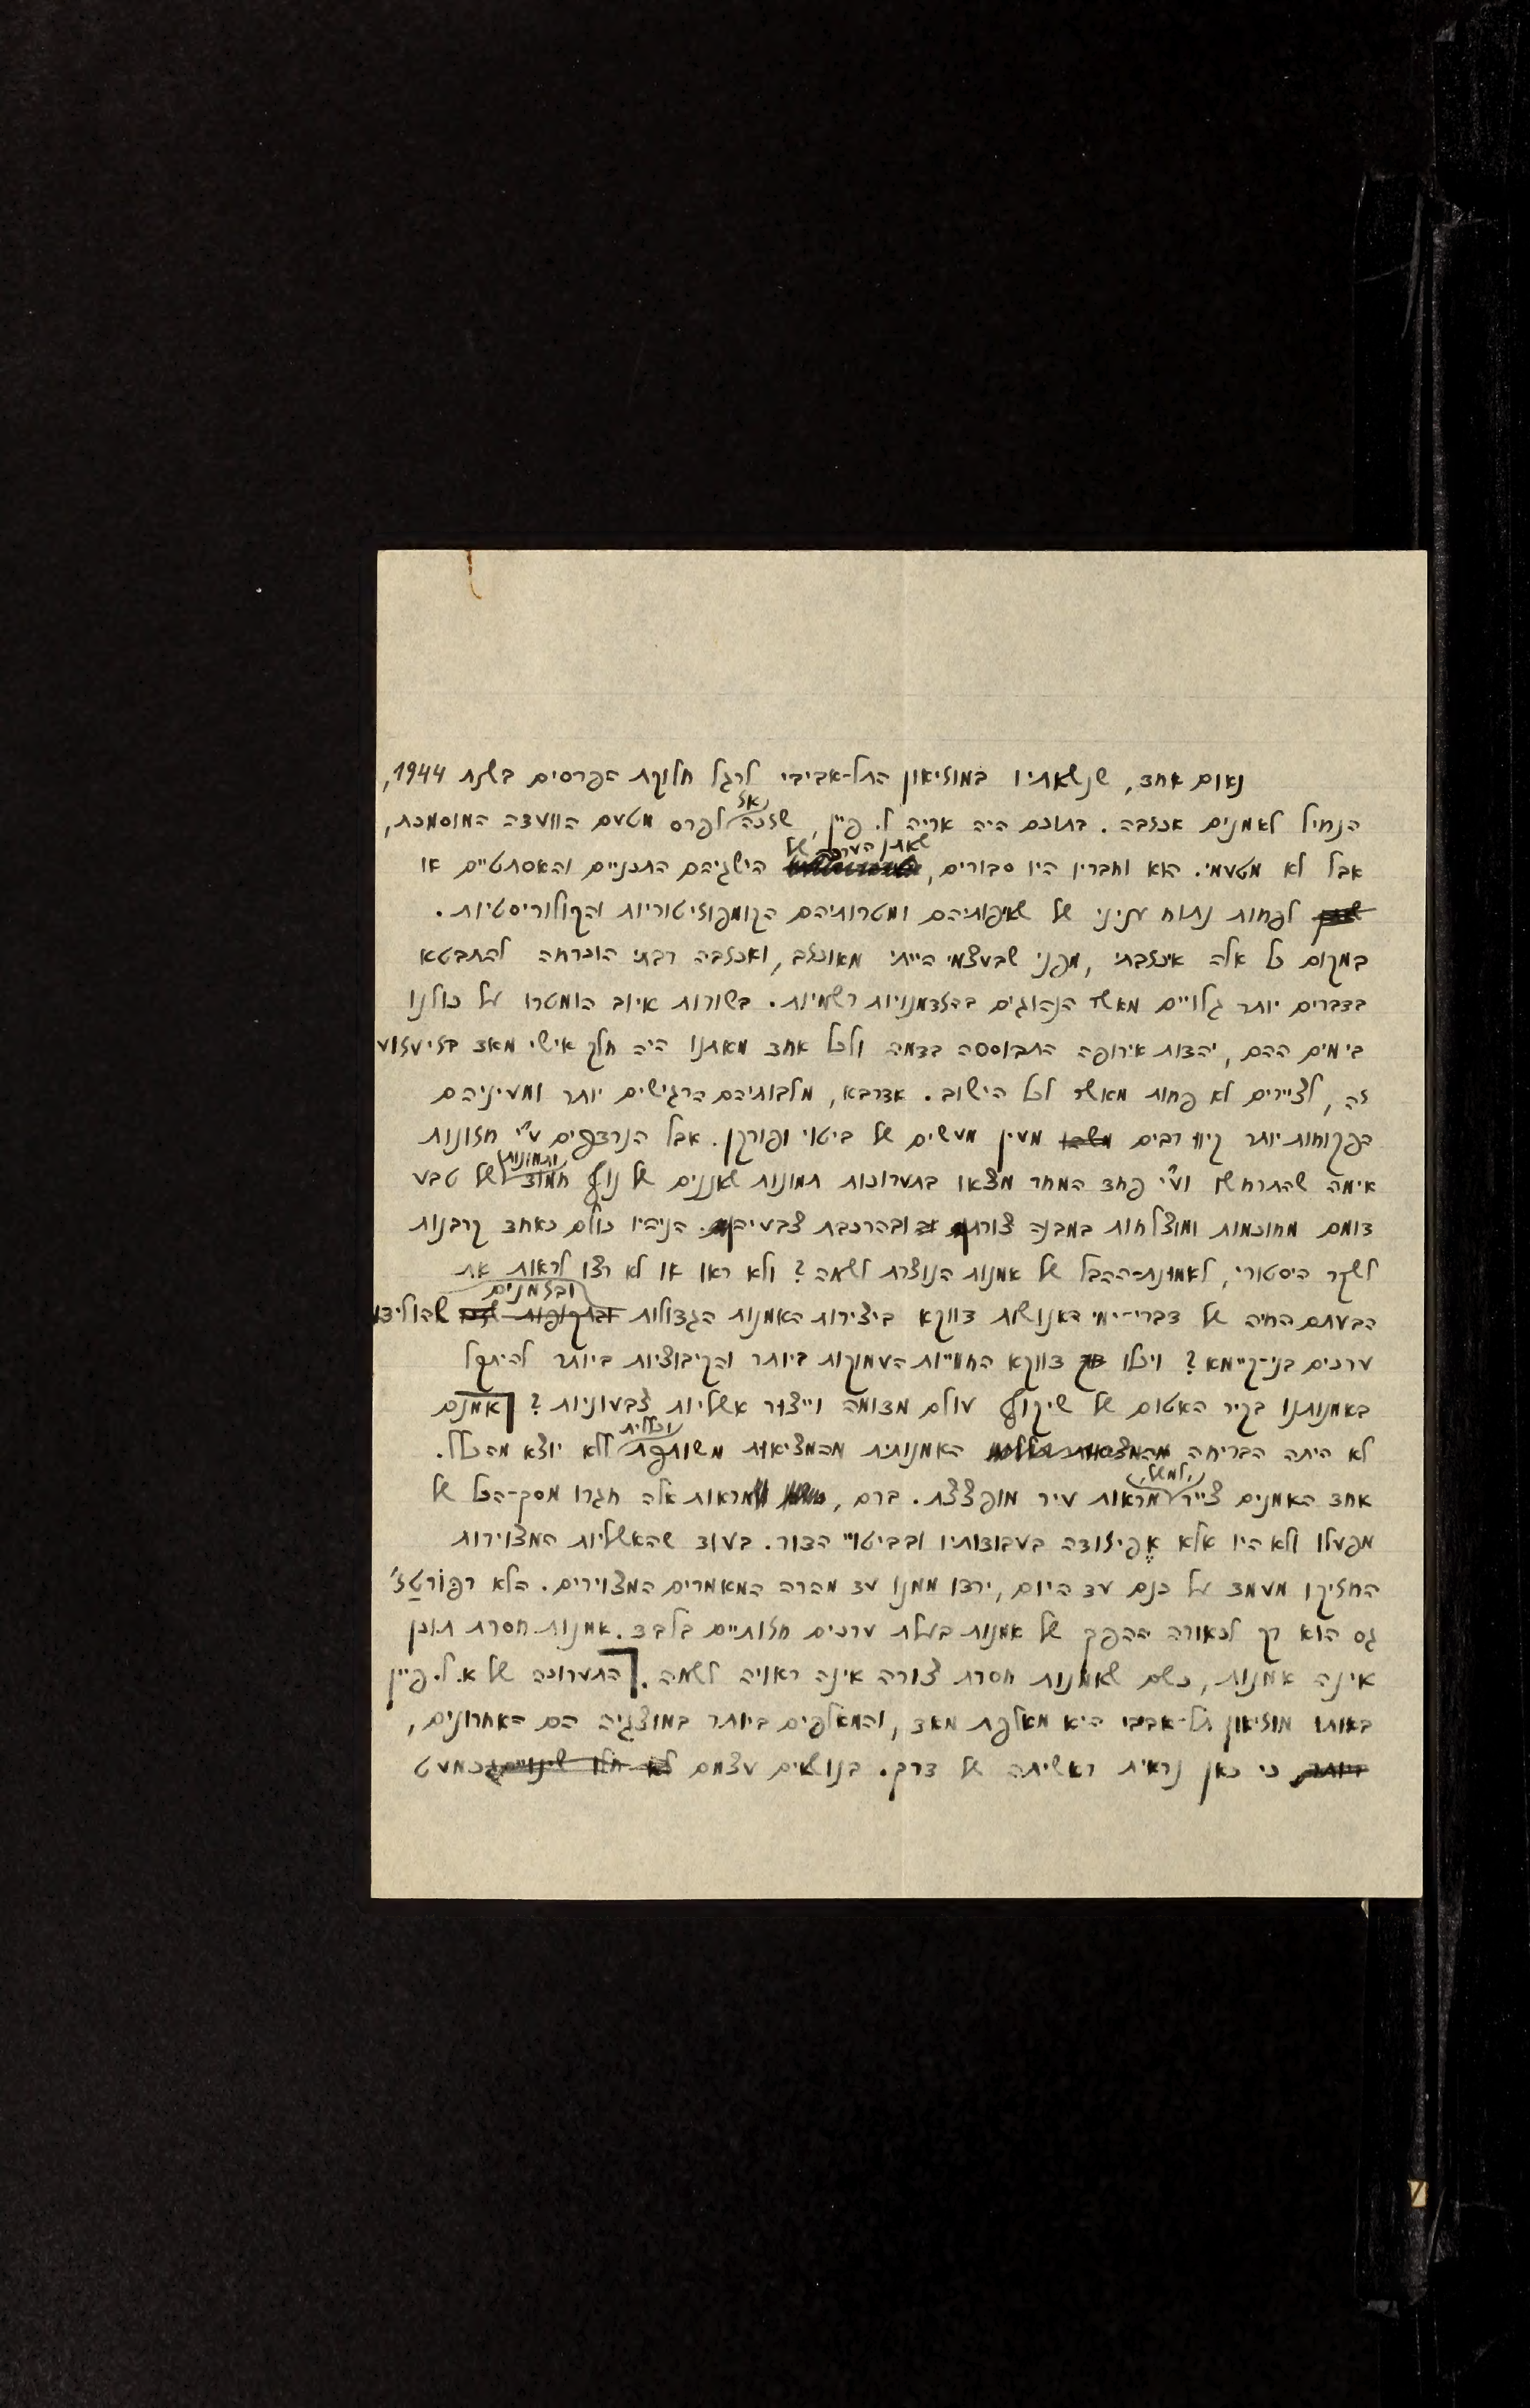 נאום אחד, שנשאתיו במוזיאון התל-אביבי לרגל חלוקת הפרסים בשנת 1944,
הנחיל לאמנים אכזבה. בתוכם היה אריה ל. פיין, שזכה אז לפרס מטעם הוועדה המוסמכת,
אבל לא מטעמי. הוא וחבריו היו סבורים, שאתן הערכה של הישגיהם התכניים והאסתטיים או
לפחות נתוח עניני של שאיפותיהם ומטרותיהם הקומפוזיטוריות והקולוריסטיות.
במקום כל אלה איכזבתי, מפני שבעצמי הייתי מאוכזב, ואכזבה רבתי הוכרחה להתבטא
בדברים יותר גלויים מאשר הנהוגים בהזדמנויות רשמיות. בשורות איוב הומטרו על כולנו
בימים ההם, יהדות אירופה התבוססה בדמה ולכל אחד מאתנו היה חלק אישי מאד בזיעזוע
זה, לציירים לא פחות מאשר לכל הישוב. אדרבא, מלבותיהם הרגישים יותר ומעיניהם
הפקוחות יותר קיוו רבים מעין מעשים של ביטוי ופורקן. אבל הנרדפים ע"י חזונות
אימה שהתרחשו וע"י פחד המחר מצאו בתערוכות תמונות שאננים של נוף חמוד ותמונות של טבע
דומם מחוכמות ומוצלחות במבנה צורתן ובהרכבת צבעיהן. הניהיו כולם כאחד קרבנות
לשקר היסטורי, לאמונת-ההבל של אמנות הנוצרת לשמה? ולא ראו או לא רצו לראות את
הבעתם החיה של דברי-ימי האנושות דווקא ביצירות האמנות הגדולות ובזמנים שהולידו
ערכים בני-קיימא? ויכלו דווקא החוויות העמוקות ביותר והקיבוציות ביותר להיתקל
באמנותנו בקיר האטום של שיקוף עולם מדומה וייצור אשליות צבעוניות? אמנם
לא היתה הבריחה האמנותית מהמציאות משותפת וכללית ללא יוצא מהכלל.
אחד האמנים צייר, למשל, מראות עיר מופצצת. ברם, מראות אלה חגרו מסך-הכל של
מפעלו ולא היו אלא אֶפיזודה בעבודותיו ובביטויי הדור. בעוד שהאשליות המצוירות
החזיקו מעמד על כנם עד היום, ירדו ממנו עד מהרה המאמרים המצוירים. הלא רפּוֹרטַז'
גם הוא רק לכאורה ההפך של אמנות בעלת ערכים חזותיים בלבד. אמנות חסרת תוכן
אינה אמנות, כשם שאמנות חסרת צורה אינה ראויה לשמה. התערוכה של א.ל. פיין
באותו מוזיאון תל-אביבי היא מאלפת מאד, והמאלפים ביותר במוצגיה הם האחרונים,
כי כאן נראית ראשיתה של דרך. בנושאים עצמם לא חלו שינויים כמעט